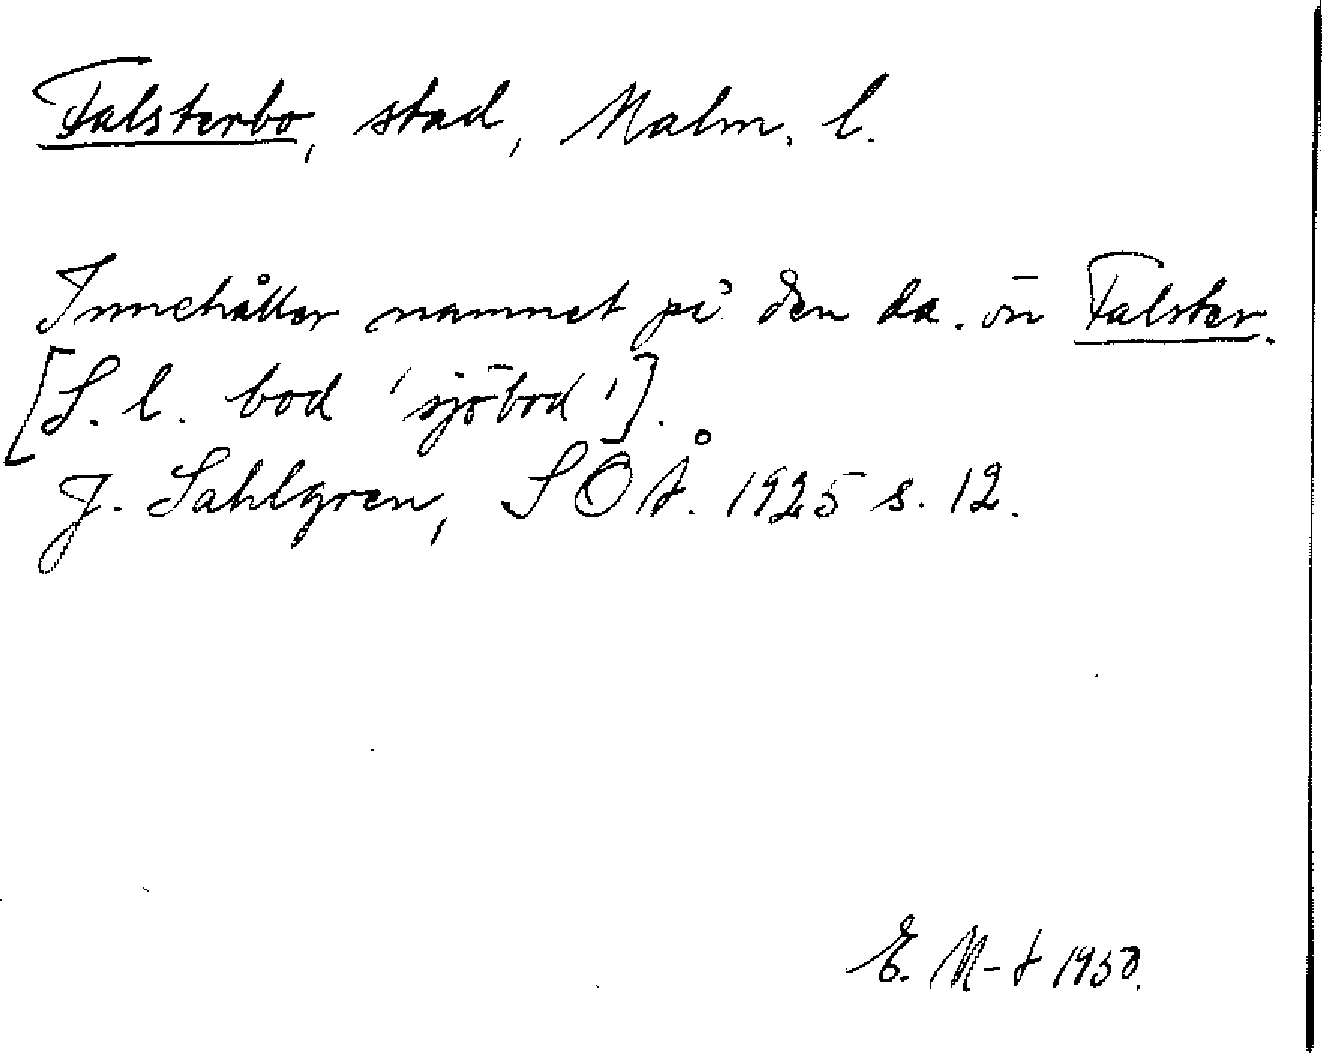 Falsterbo, stad, Malm. l.
Innehåller namnet på den da. ön Falster.
[S. l. bod 'sjöbod'].
J. Sahlgren, SOÅ. 1925 s. 12.
E. M-t 1950.